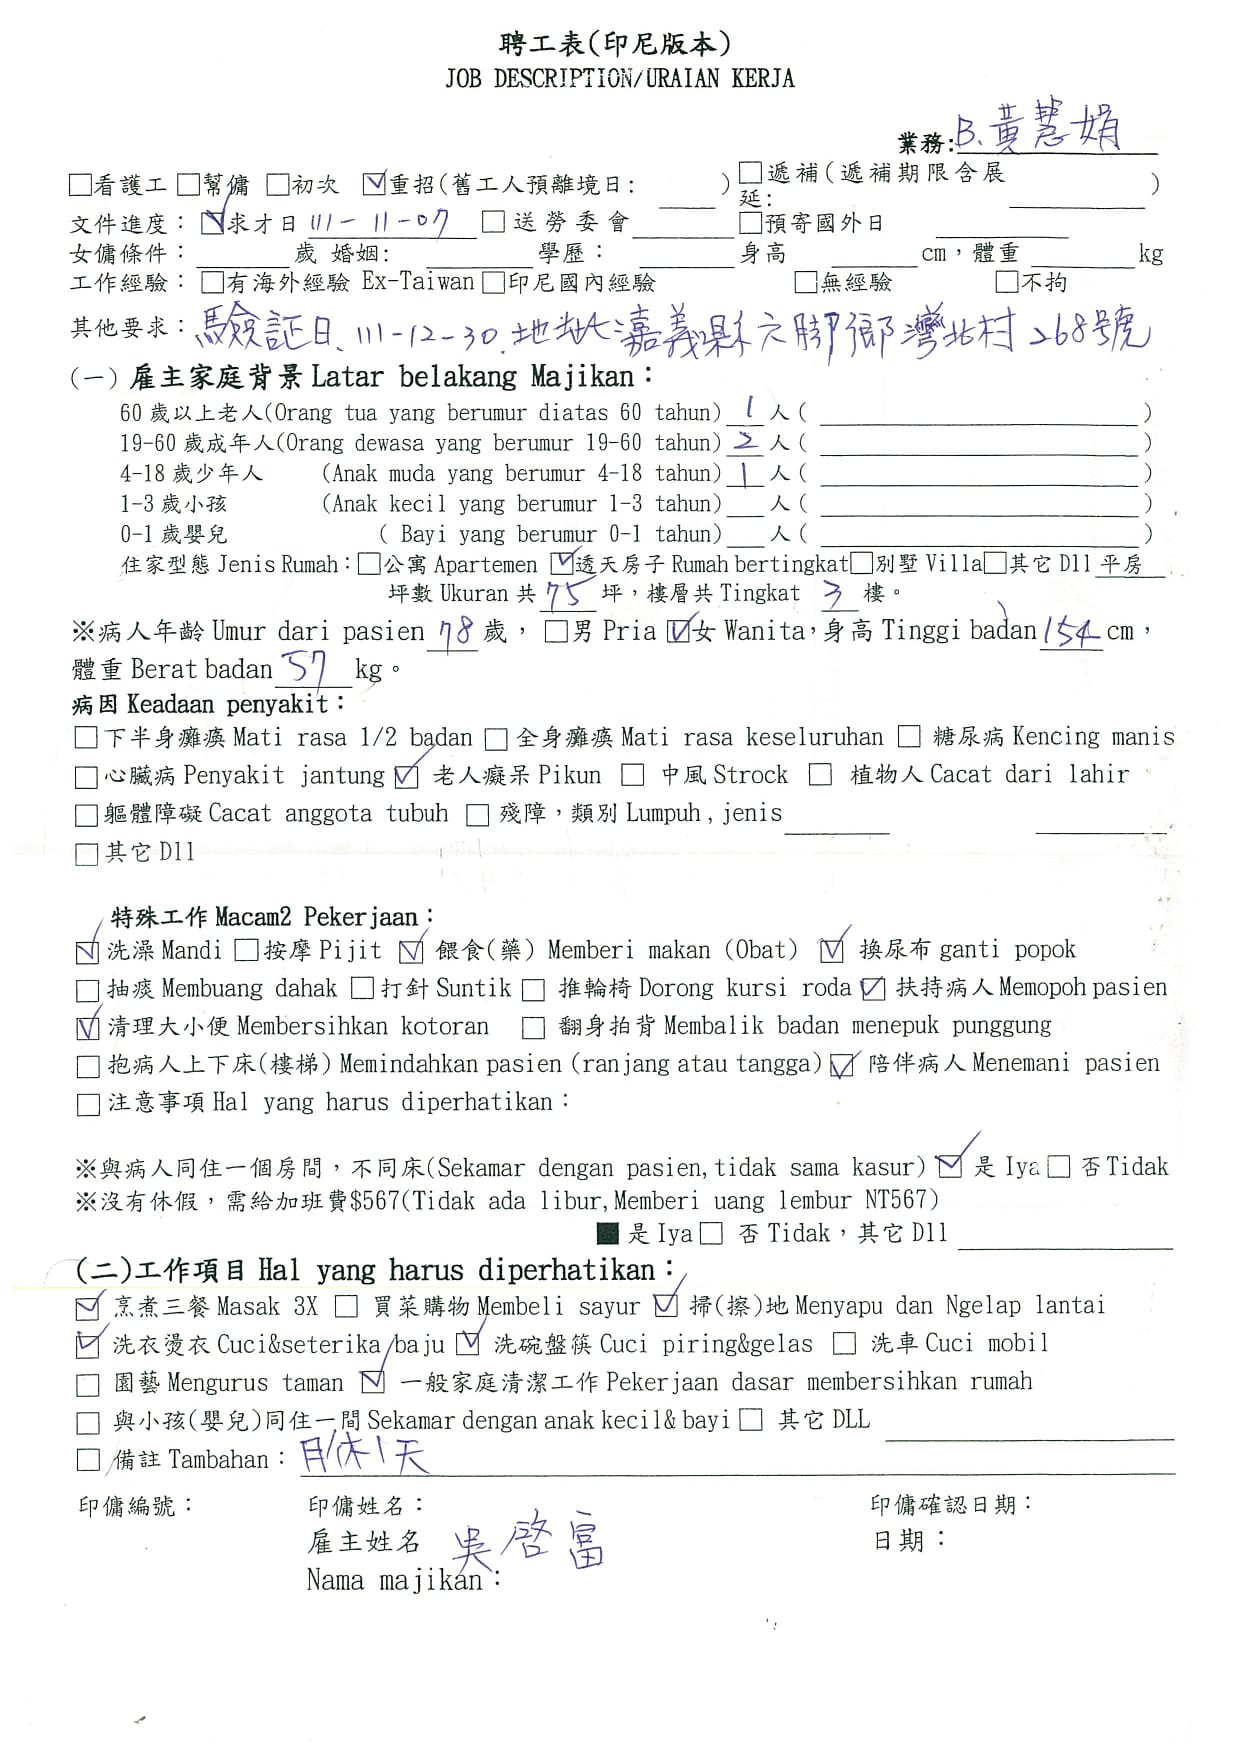 聘工表(印尼版本)
JOB DESCRIPTION/URAIAN KERJA
業務:B.黃慧娟
□看護工 □幫傭 □初次 ☑重招(舊工人預離境日: ) □遞補(遞補期限含展延: )
文件進度：☑求才日 111-11-07 □送勞委會 □預寄國外日
女傭條件： 歲 婚姻: 學歷： 身高 cm，體重 kg
工作經驗：□有海外經驗 Ex-Taiwan □印尼國內經驗 □無經驗 □不拘
其他要求：驗証日、111-12-30.地址:嘉義縣六腳鄉灣北村268號
(一) 雇主家庭背景 Latar belakang Majikan：
60 歲以上老人(Orang tua yang berumur diatas 60 tahun) 1 人( )
19-60 歲成年人(Orang dewasa yang berumur 19-60 tahun) 2 人( )
4-18 歲少年人 (Anak muda yang berumur 4-18 tahun) 1 人( )
1-3 歲小孩 (Anak kecil yang berumur 1-3 tahun) 人( )
0-1 歲嬰兒 ( Bayi yang berumur 0-1 tahun) 人( )
住家型態 Jenis Rumah：□公寓 Apartemen ☑透天房子 Rumah bertingkat □別墅 Villa □其它 Dll 平房
坪數 Ukuran 共 75 坪，樓層共 Tingkat 3 樓。
※病人年齡 Umur dari pasien 78 歲， □男 Pria ☑女 Wanita，身高 Tinggi badan 154 cm，
體重 Berat badan 57 kg。
病因 Keadaan penyakit：
□下半身癱瘓 Mati rasa 1/2 badan □ 全身癱瘓 Mati rasa keseluruhan □ 糖尿病 Kencing manis
□心臟病 Penyakit jantung ☑ 老人癡呆 Pikun □ 中風 Strock □ 植物人 Cacat dari lahir
□軀體障礙 Cacat anggota tubuh □ 殘障，類別 Lumpuh , jenis
□其它 Dll
特殊工作 Macam2 Pekerjaan：
☑洗澡 Mandi □按摩 Pijit ☑ 餵食(藥) Memberi makan (Obat) ☑ 換尿布 ganti popok
□抽痰 Membuang dahak □打針 Suntik □ 推輪椅 Dorong kursi roda ☑ 扶持病人 Memopoh pasien
☑清理大小便 Membersihkan kotoran □ 翻身拍背 Membalik badan menepuk punggung
□抱病人上下床(樓梯) Memindahkan pasien (ranjang atau tangga) ☑ 陪伴病人 Menemani pasien
□注意事項 Hal yang harus diperhatikan：
※與病人同住一個房間，不同床(Sekamar dengan pasien, tidak sama kasur) ☑ 是 Iya □ 否 Tidak
※沒有休假，需給加班費$567(Tidak ada libur, Memberi uang lembur NT567)
■ 是 Iya □ 否 Tidak，其它 Dll
(二)工作項目 Hal yang harus diperhatikan：
☑ 烹煮三餐 Masak 3X □ 買菜購物 Membeli sayur ☑ 掃(擦)地 Menyapu dan Ngelap lantai
☑ 洗衣燙衣 Cuci&seterika baju ☑ 洗碗盤筷 Cuci piring&gelas □ 洗車 Cuci mobil
□ 園藝 Mengurus taman ☑ 一般家庭清潔工作 Pekerjaan dasar membersihkan rumah
□ 與小孩(嬰兒)同住一間 Sekamar dengan anak kecil& bayi □ 其它 DLL
□ 備註 Tambahan：月休1天
印傭編號： 印傭姓名： 印傭確認日期：
雇主姓名 吳啓富 日期：
Nama majikan：